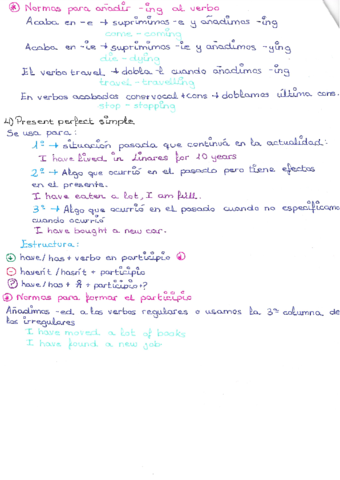 * Normas para añadir -ing al verbo
Acaba en -e → suprimimos -e y añadimos -ing
come - coming
Acaba en -ie → suprimimos -ie y añadimos -ying
die - dying
El verbo travel → dobla -l cuando añadimos -ing
travel - travelling
En verbos acabados con+vocal+cons → doblamos última cons.
stop - stopping
4) Present perfect simple.
Se usa para:
1º → situación pasada que continúa en la actualidad:
I have lived in Linares for 10 years
2º → Algo que ocurrió en el pasado pero tiene efectos
en el presente.
I have eaten a lot, I am full.
3º → Algo que ocurrió en el pasado cuando no especificamos
cuando ocurrió
I have bought a new car.
Estructura:
+ have/has + verbo en participio *
- haven't/hasn't + participio
? have/has + + participio+?
* Normas para formar el participio
Añadimos -ed a los verbos regulares o usamos la 3ª columna de
los irregulares
I have moved a lot of books
I have found a new job